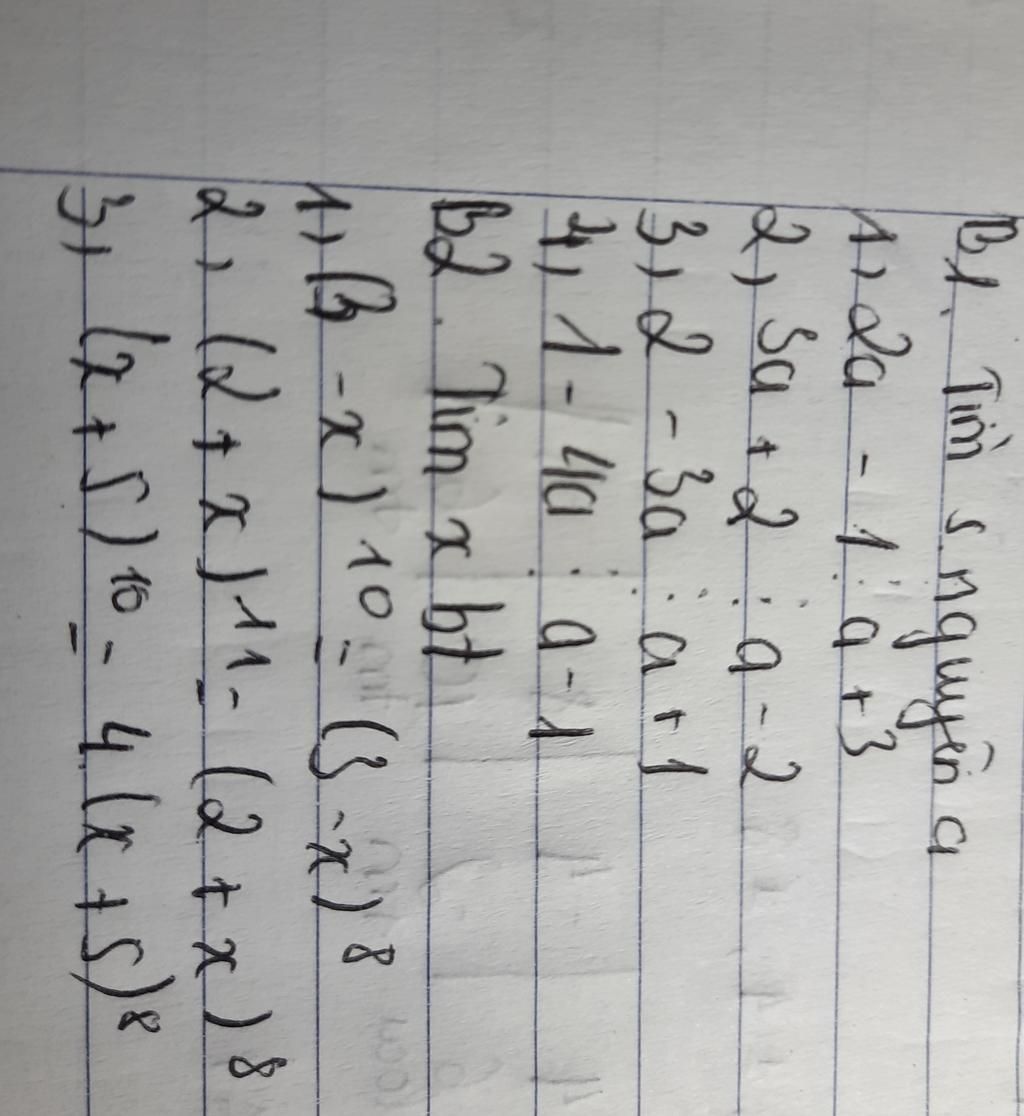 B1. Tìm s.nguyên a
1, 2a - 1 ⋮ a + 3
2, 5a + 2 ⋮ a - 2
3, 2 - 3a ⋮ a + 1
4, 1 - 4a ⋮ a - 1
B2. Tìm x bt
1, (3 - x)10 = (3 - x)8
2, (2 + x)11 = (2 + x)8
3, (x + 5)10 = 4.(x + 5)8